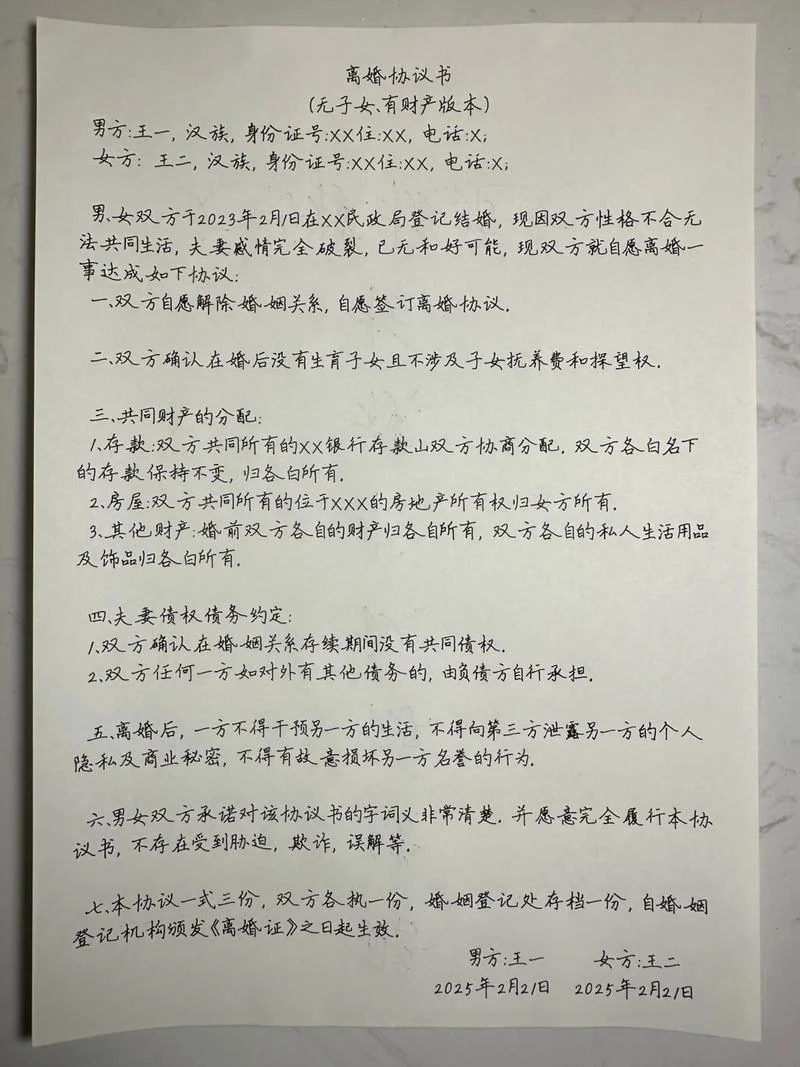 离婚协议书
(无子女、有财产版本)
男方:王一, 汉族, 身份证号:XX住:XX, 电话:X;
女方: 王二, 汉族, 身份证号:XX住:XX, 电话:X;
男、女双方于2023年2月1日在XX民政局登记结婚, 现因双方性格不合无
法共同生活, 夫妻感情完全破裂, 已无和好可能, 现双方就自愿离婚一
事达成如下协议:
一、双方自愿解除婚姻关系, 自愿签订离婚协议.
二、双方确认在婚后没有生育子女且不涉及子女抚养费和探望权.
三、共同财产的分配:
1、存款:双方共同所有的XX银行存款山双方协商分配. 双方各白名下
的存款保持不变, 归各白所有.
2、房屋:双方共同所有的位于XXX的房地产所有权归女方所有.
3、其他财产:婚前双方各自的财产归各自所有, 双方各自的私人生活用品
及饰品归各白所有.
四、夫妻债权债务约定:
1、双方确认在婚姻关系存续期间没有共同债权.
2、双方任何一方如对外有其他债务的, 由负债方自行承担.
五、离婚后, 一方不得干预另一方的生活, 不得向第三方泄露另一方的个人
隐私及商业秘密, 不得有故意损坏另一方名誉的行为.
六、男女双方承诺对该协议书的字词义非常清楚. 并愿意完全履行本协
议书, 不存在受到胁迫, 欺诈, 误解等.
七、本协议一式三份, 双方各执一份, 婚姻登记处存档一份, 自婚姻
登记机构颁发《离婚证》之日起生效.
男方:王一 女方:王二
2025年2月21日 2025年2月21日